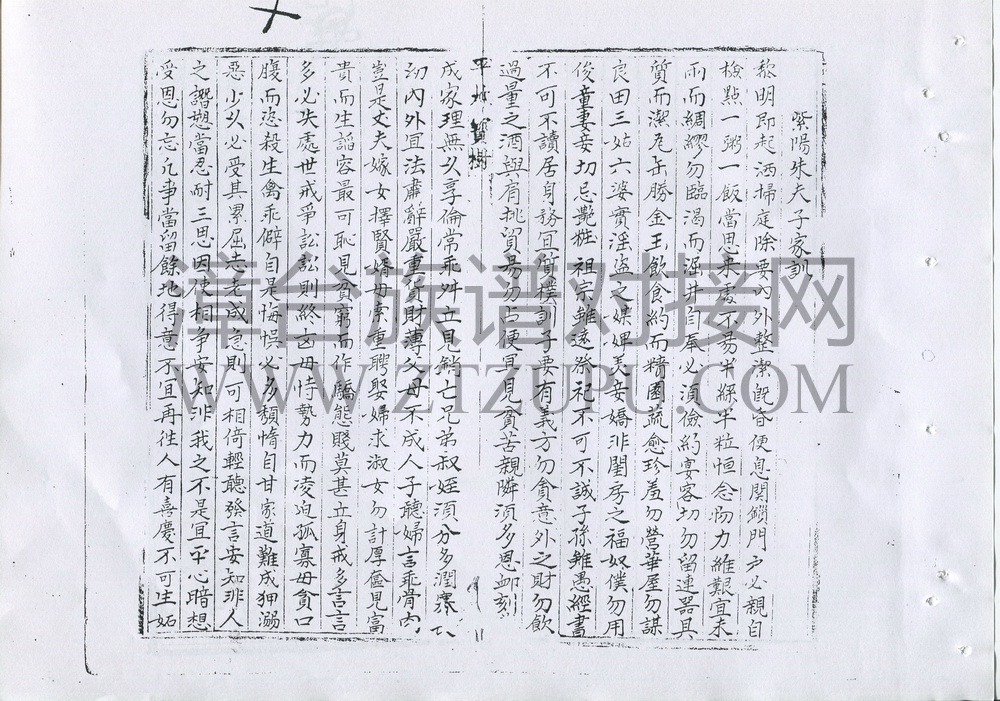 紫陽朱夫子家訓
黎明即起洒掃庭除要內外整潔既昏便息関鎖門戶必親自
檢點一粥一飯當思来處不易半絲半粒恒念物力維艱宜未
雨而綢繆勿臨渴而掘井自奉必須儉約宴客切勿留連器具
質而潔瓦缶勝金玉飲食約而精園蔬愈珍羞勿營華屋勿謀
良田三姑六婆實淫盜之媒婢美妾嬌非閨房之福奴僕勿用
俊童妻妾切忌艷粧祖宗雖遠祭祀不可不誠子孫雖愚經書
不可不讀居身務宜質樸訓子要有義方勿貪意外之財勿飲
過量之酒與肩挑貿易勿占便宜見貧苦親隣須多恩卹刻
成家理無久享倫常乖舛立見銷亡兄弟叔姪須分多潤寡
幼內外宜法肅辭嚴重貲財薄父母不成人子聽婦言乖骨肉
豈是丈夫嫁女擇賢婿毋索重聘娶婦求淑女勿計厚奩見富
貴而生諂容最可恥見貧窮而作驕態賤莫甚立身戒多言言
多必失處世戒爭訟訟則終凶毋恃勢力而凌迫孤寡毋貪口
腹而恣殺生禽乖僻自是悔悮必多頹惰自甘家道難成狎溺
惡少久必受其累屈志老成急則可相倚輕聽發言安知非人
之譖愬當忍耐三思因事相争安知非我之不是宜平心暗想
受恩勿忘凢事當留餘地得意不宜再往人有喜慶不可生妬
寶樹
漳台族谱对接网
WWW.ZTZUPU.COM